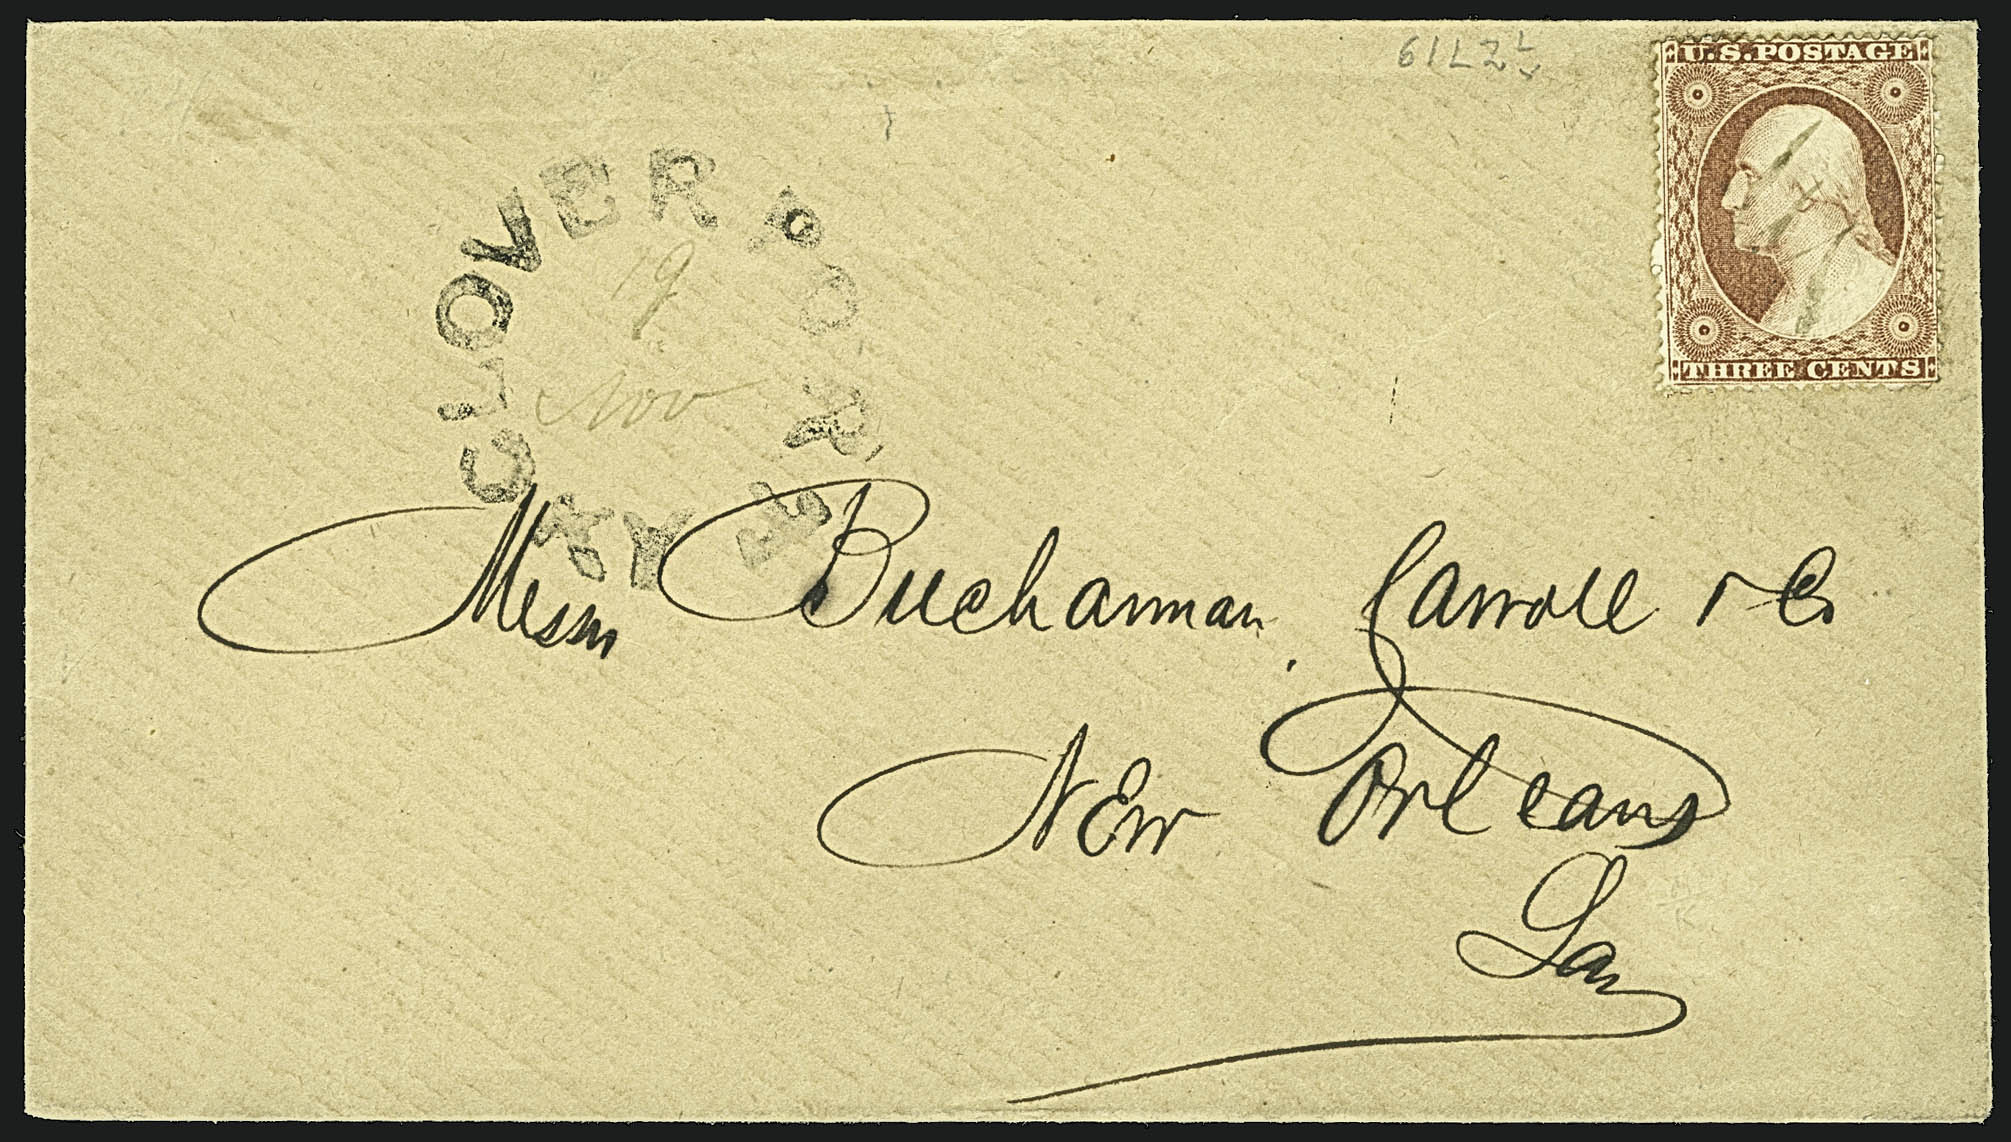 U.S. POSTAGE
THREE CENTS
CLOVERPORT KY
19
Nov
Messrs Buchannan Carroll & Co
New Orleans
Lou